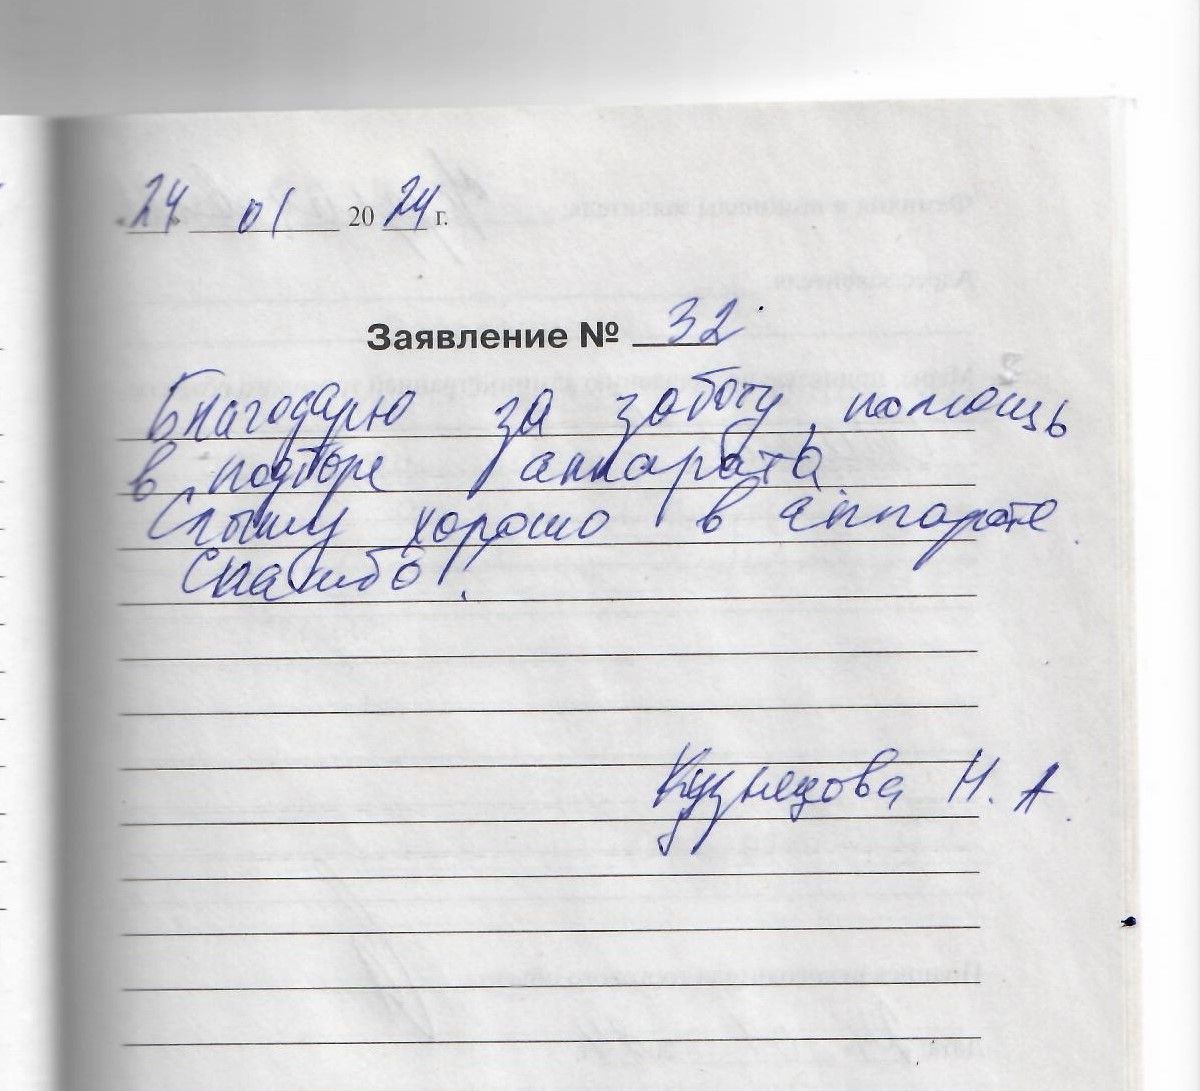 "24" 01 2024 г.
Заявление № 32
Благодарю за заботу, помощь
в подборе аппарата.
Слышу хорошо в аппарате.
Спасибо!
Кузнецова Н. А.